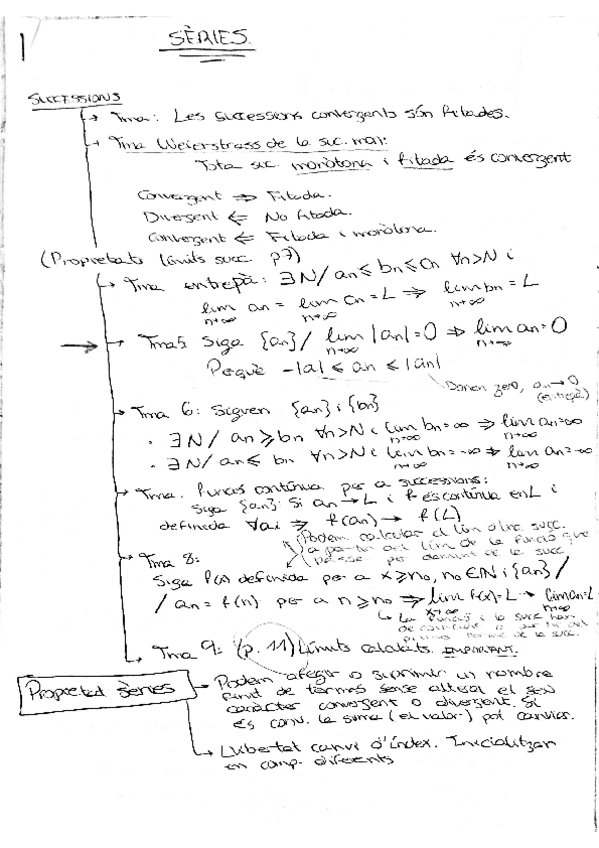 1
SÈRIES
SUCCESSIONS
Tma: Les successions convergents són fitades.
Tma Weierstrass de la suc. mon:
Tota suc. monòtona i fitada és convergent
Convergent ⇒ Fitada.
Divergent ⇐ No fitada.
Convergent ⇐ Fitada i monòtona.
(Propietats límits succ. p7)
Tma entrepà: ∃N/ an ≤ bn ≤ cn ∀n>N i
lim an = lim cn = L ⇒ lim bn = L
n→∞ n→∞ n→∞
Tma 5: Siga {an}/ lim |an| = 0 ⇒ lim an = 0
n→∞ n→∞
Perquè -|a| ≤ an ≤ |an|
Donen zero, an→0
(entrepà)
Tma 6: Siguen {an} i {bn}
· ∃N/ an ≥ bn ∀n>N i lim bn = ∞ ⇒ lim an = ∞
n→∞ n→∞
· ∃N/ an ≤ bn ∀n>N i lim bn = -∞ ⇒ lim an = -∞
n→∞ n→∞
Tma. Funció contínua per a successions:
Siga {an}: Si an → L i f és contínua en L i
definida ∀ai ⇒ f(an) → f(L)
Podem calcular el lím d'una succ.
a partir del lím de la funció que
passe per damunt de la succ
Tma 8:
Siga f(x) definida per a x ≥ n0, n0 ∈ N i {an}/
/ an = f(n) per a n ≥ n0 ⇒ lim f(x) = L → lim an = L
x→∞ n→∞
La funció i la succ han
de coincidir a partir del
de la succ.
Tma 9: (p. 11) Límits calculats. IMPORTANT.
Propietat sèries
Podem afegir o suprimir un nombre
finit de termes sense alterar el seu
caràcter convergent o divergent. Si
és conv. la suma (el valor) pot canviar.
Llibertat canvi d'índex. Inicialitzar
en comp. diferents